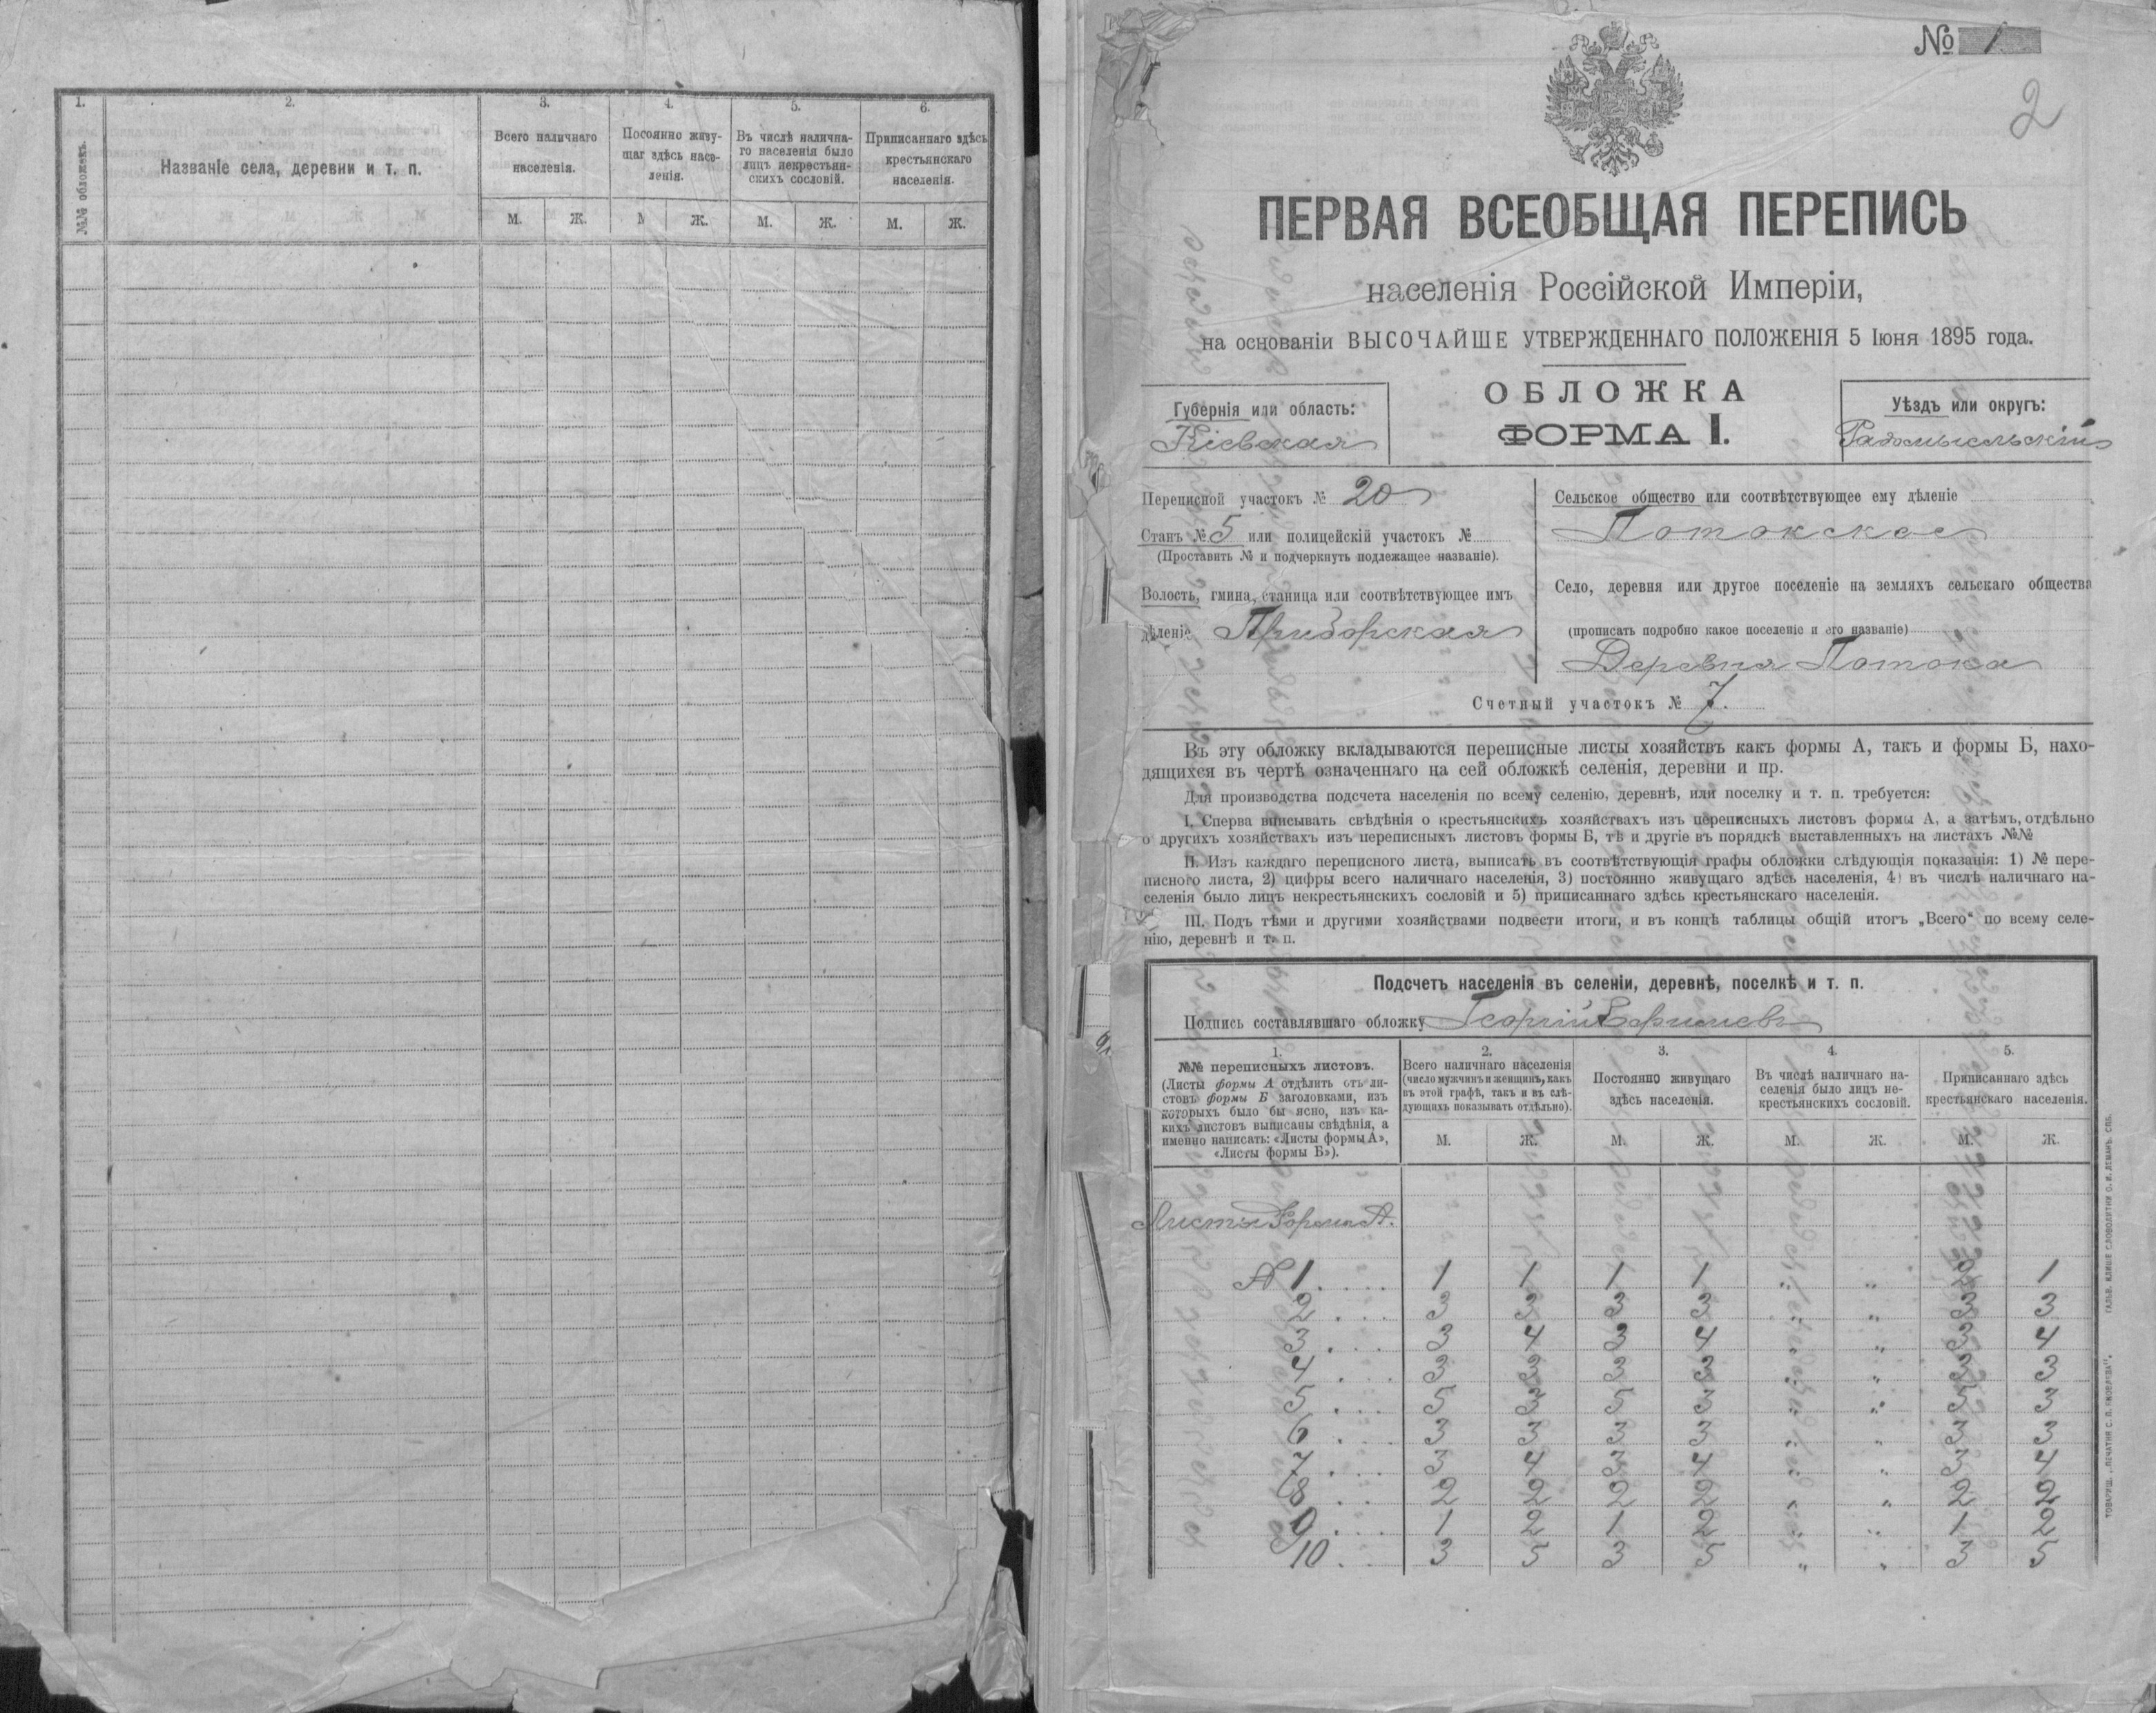 1. 2. 3. 4. 5. 6.
№№ обложекъ.
Названіе села, деревни и т. п.
Всего наличнаго
населенія.
Постоянно живу-
щаг здѣсь насе-
ленія.
Въ числѣ налична-
го населенія было
лицъ некрестьян-
скихъ сословій.
Приписаннаго здѣсь
крестьянскаго
населенія.
М. Ж. М Ж. М. Ж. М. Ж.
№ 1
2
ПЕРВАЯ ВСЕОБЩАЯ ПЕРЕПИСЬ
населенія Россійской Имперіи,
на основаніи ВЫСОЧАЙШЕ УТВЕРЖДЕННАГО ПОЛОЖЕНІЯ 5 Іюня 1895 года.
Губернія или область:
Кіевская
ОБЛОЖКА
ФОРМА I.
Уѣздъ или округъ:
Радомысльскій
Переписной участокъ № 20
Станъ № 5 или полицейскій участокъ №
(Проставить № и подчеркнуть подлежащее названіе).
Волость, гмина, станица или соотвѣтствующее имъ
дѣленіе Приборская
Сельское общество или соотвѣтствующее ему дѣленіе
Потокское
Село, деревня или другое поселеніе на земляхъ сельскаго общества
(прописать подробно какое поселеніе и его названіе)
Деревня Потока
Счетный участокъ № 7.
Въ эту обложку вкладываются переписные листы хозяйствъ какъ формы А, такъ и формы Б, нахо-
дящихся въ чертѣ означеннаго на сей обложкѣ селенія, деревни и пр.
Для производства подсчета населенія по всему селенію, деревнѣ, или поселку и т. п. требуется:
I. Сперва вписывать свѣдѣнія о крестьянскихъ хозяйствахъ изъ переписныхъ листовъ формы А, а затѣмъ, отдѣльно
о другихъ хозяйствахъ изъ переписныхъ листовъ формы Б, тѣ и другіе въ порядкѣ выставленныхъ на листахъ №№
II. Изъ каждаго переписного листа, выписать въ соотвѣтствующія графы обложки слѣдующія показанія: 1) № пере-
писного листа, 2) цифры всего наличнаго населенія, 3) постоянно живущаго здѣсь населенія, 4) въ числѣ наличнаго на-
селенія было лицъ некрестьянскихъ сословій и 5) приписаннаго здѣсь крестьянскаго населенія.
III. Подъ тѣми и другими хозяйствами подвести итоги, и въ концѣ таблицы общій итогъ „Всего“ по всему селе-
нію, деревнѣ и т. п.
Подсчетъ населенія въ селеніи, деревнѣ, поселкѣ и т. п.
Подпись составлявшаго обложку Георгій
1. 2. 3. 4. 5.
№№ переписныхъ листовъ.
(Листы формы А отдѣлить отъ ли-
стовъ формы Б заголовками, изъ
которыхъ было бы ясно, изъ ка-
кихъ листовъ выписаны свѣдѣнія, а
именно написать: «Листы формы А»,
«Листы формы Б»).
Всего наличнаго населенія
(число мужчинъ и женщинъ, какъ
въ этой графѣ, такъ и въ слѣ-
дующихъ показывать отдѣльно).
Постоянно живущаго
здѣсь населенія.
Въ числѣ наличнаго на-
селенія было лицъ не-
крестьянскихъ сословій.
Приписаннаго здѣсь
крестьянскаго населенія.
М. Ж. М. Ж. М. Ж. М. Ж.
Листы Формы А.
№ 1 . . . . 1 1 1 1 „ „ 2 1
2 . . . 3 3 3 3 „ „ 3 3
3 . . . 3 4 3 4 „ „ 3 4
4 . . . 3 3 3 3 „ „ 3 3
5 . . . 5 3 5 3 „ „ 5 3
6 . . . 3 3 3 3 „ „ 3 3
7 . . . 3 4 3 4 „ „ 3 4
8 . . 2 2 2 2 „ „ 2 2
9 . . . 1 2 1 2 „ „ 1 2
10 . . 3 5 3 5 „ „ 3 5
ТОВАРИЩ. „ПЕЧАТНЯ С. П. ЯКОВЛЕВА“. ГАЛЬВ. КЛИШЕ СЛОВОЛИТНИ О. И. ЛЕМАНЪ. СПБ.